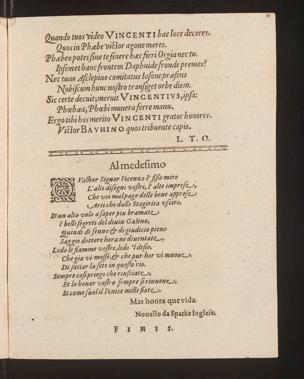 Quando tuos video VINCENTI hac luce decores.
Quos in Phœbe victor agone meres.
Phœbeo potes sine te sinere hæc fieri Orgia nec tu.
Ipsemet hanc frontem Daphnide fronde premes?
Nec tuus Asclepius comitatus Iasone præsens
Nobiscum hunc nostro transiget orbe diem.
Sic certe decuit; meruit VINCENTIVS, ipsa;
Phœbæa, Phœbi munera ferre manu.
Ergo tibi hos merito VINCENTI grator honores.
Victor BAVHINO quos tribuente capis.
L. T. O.
Al medesimo
Valhor Signor Vicenzo s' fisso miro
L'alti disegni vostri, l'alte imprese,
Che voi mal pago delle bene apprese
Arti che dallo Stagirita usciro.
D'un alto volo a saper piu bramate
I belli segreti del divin Galeno,
Quindi di senno & di giudicio pieno
Saggio dottore hora ne diventate.
Lodo le fiamme vostre, lodo 'l desio,
Che gia vi mosse, & che pur hor vi muove
Di satiar la sete in questo rio.
Sempre cosi prego che riusciate,
Et lo honor vostro sempre si rinuove
Si come suol il Fenice mille fiate.
Mas honra que vida.
Novello da Sparke Inglese.
FINIS.